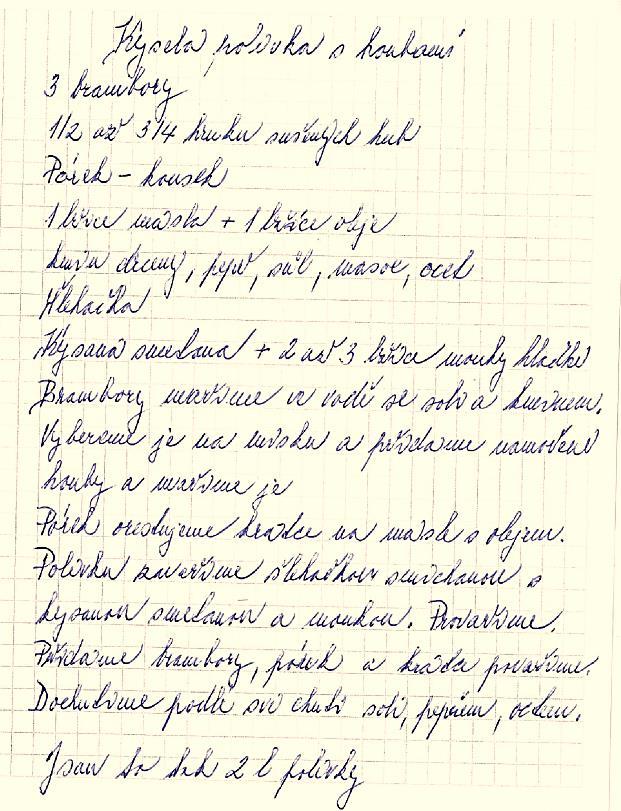 Kyselá polévka s houbami
3 brambory
1/2 až 3/4 hrnku sušených hub
Pórek – kousek
1 lžíce másla + 1 lžíce oleje
kmín drcený, pepř, sůl, ocet
Šlehačka
Kysaná smetana + 2 až 3 lžíce mouky hladké
Brambory uvaříme ve vodě se solí a kmínem.
Vybereme je na misku a přidáme namočené
houby a uvaříme je
Pórek orestujeme krátce na másle s olejem.
Polévku zavaříme šlehačkou smíchanou s
kysanou smetanou a moukou. Provaříme.
Přidáme brambory, pórek a krátce povaříme.
Dochutíme podle své chuti solí, pepřem, octem.
Jsou to tak 2 l polévky